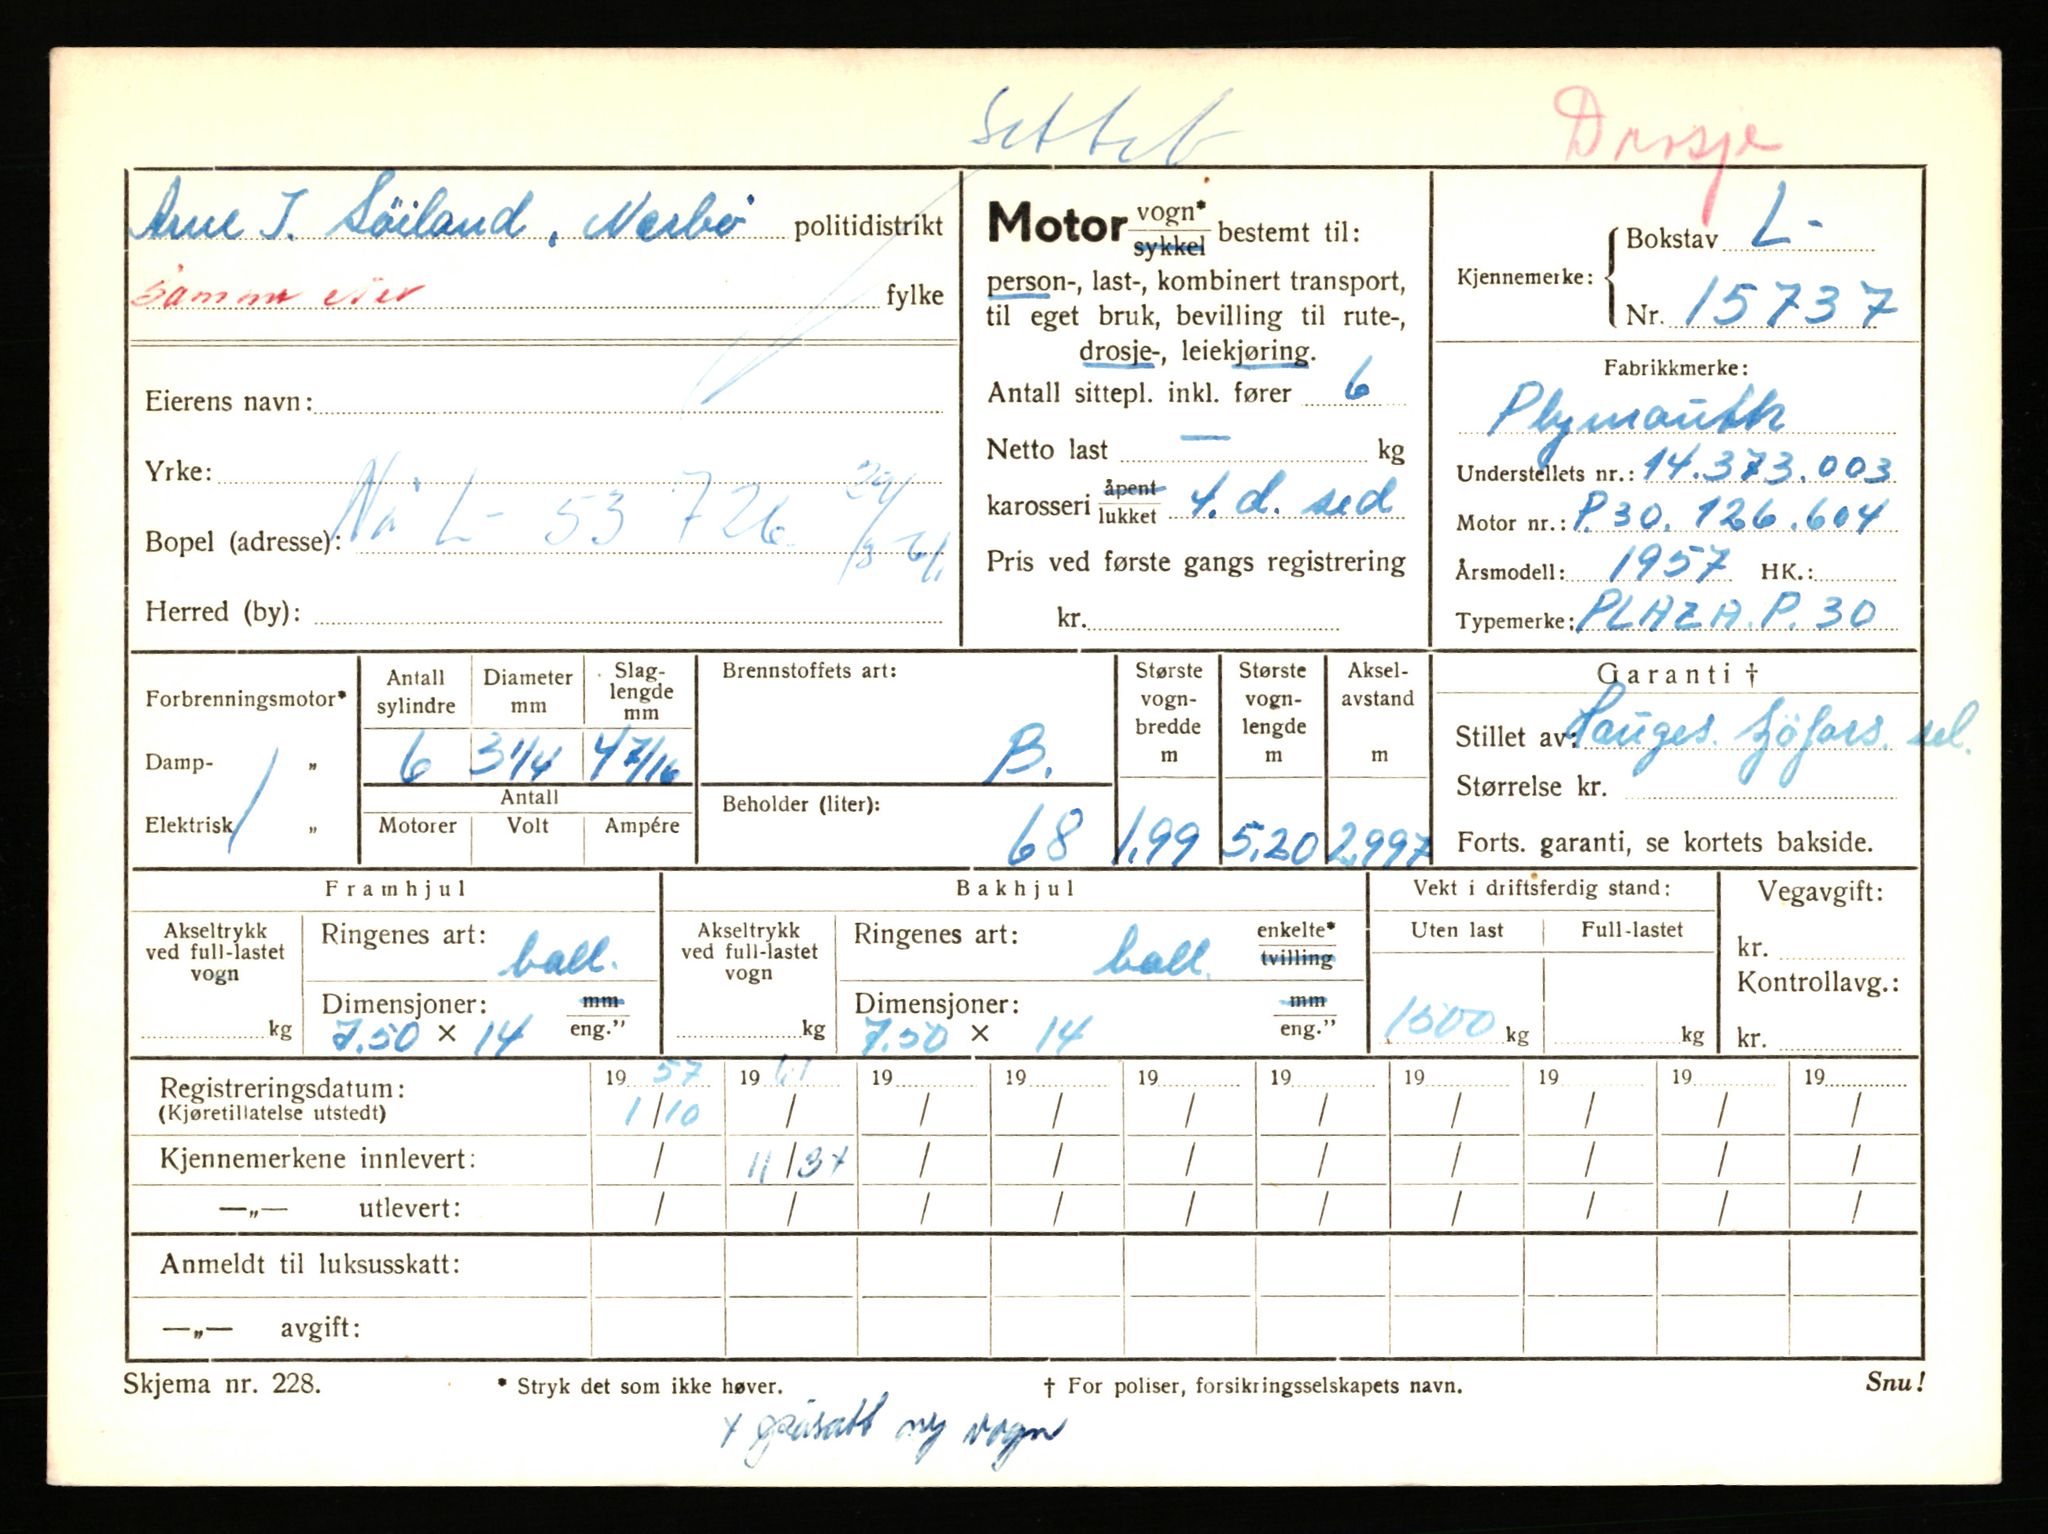 settet
Drosje
Arne J. Söiland, Nærbö politidistrikt
samme eier fylke
Eierens navn:
Yrke:
Nå L- 53726. 29/3-61.
Bopel (adresse):
Herred (by):
Motor vogn* sykkel bestemt til:
person-, last-, kombinert transport,
til eget bruk, bevilling til rute-,
drosje-, leiekjøring.
Antall sittepl. inkl. fører 6
Netto last — kg
karosseri åpent lukket 4.d. sed
Pris ved første gangs registrering
kr.
Kjennemerke: Bokstav L-
Nr. 15737
Fabrikkmerke:
Plymouth
Understellets nr.: 14.373.003
Motor nr.: P.30.126.604
Årsmodell: 1957 HK.:
Typemerke: PLAZA.P.30
Forbrenningsmotor*
Damp- „
Elektrisk „
Antall sylindre Diameter mm Slag-lengde mm
6 3 1/4 4 7/16
Antall
Motorer Volt Ampére
Brennstoffets art:
B.
Beholder (liter):
68
Største vogn-bredde m
1,99
Største vogn-lengde m
5.20
Aksel-avstand m
2,997
Garanti †
Stillet av: Hauges. Sjöfors. sel.
Størrelse kr.
Forts. garanti, se kortets bakside.
Framhjul
Akseltrykk ved full-lastet vogn
kg
Ringenes art: ball.
Dimensjoner: mm
7.50 × 14 eng.”
Bakhjul
Akseltrykk ved full-lastet vogn
kg
Ringenes art: ball. enkelte* tvilling
Dimensjoner: mm
7.50 × 14 eng.”
Vekt i driftsferdig stand:
Uten last Full-lastet
1500 kg kg
Vegavgift:
kr.
Kontrollavg.:
kr.
Registreringsdatum: 19 57 19 61 19 19 19 19 19 19 19 19
(Kjøretillatelse utstedt) 1/10 / / / / / / / / /
Kjennemerkene innlevert: / 11/3+ / / / / / / / /
—„— utlevert: / / / / / / / / / /
Anmeldt til luksusskatt:
—„— avgift:
Skjema nr. 228. * Stryk det som ikke høver. † For poliser, forsikringsselskapets navn. Snu!
+ påsatt ny vogn